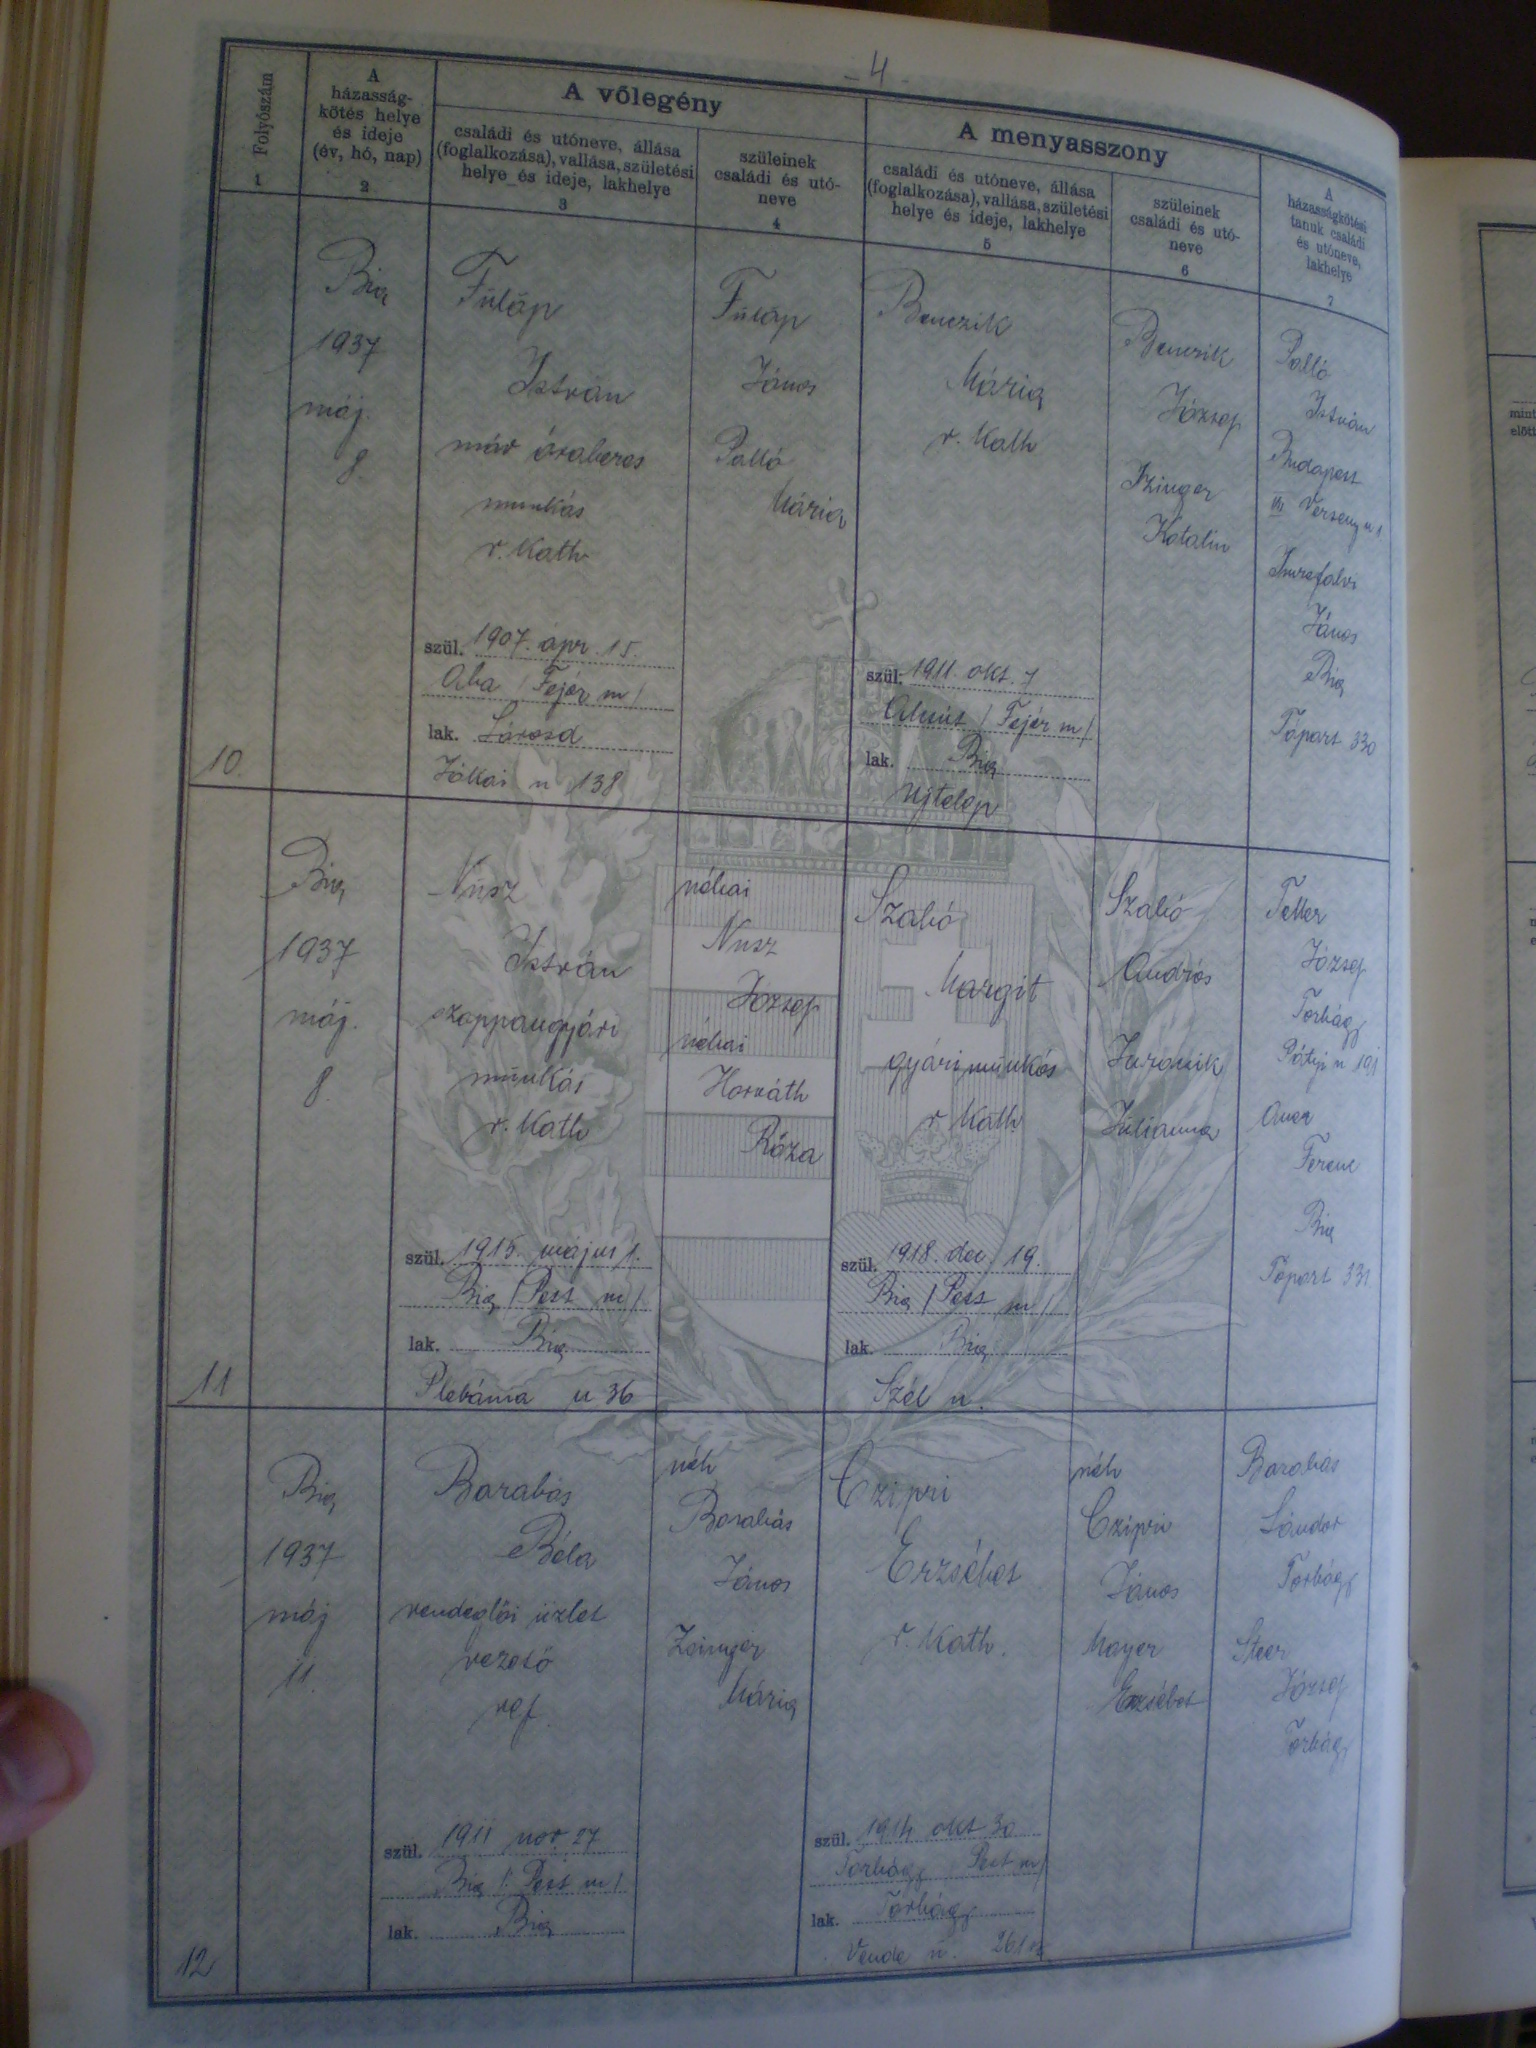 - 4 -
Folyószám
1
A
házasság-
kötés helye
és ideje
(év, hó, nap)
2
A vőlegény
családi és utóneve, állása
(foglalkozása), vallása, születési
helye és ideje, lakhelye
3
szüleinek
családi és utó-
neve
4
A menyasszony
családi és utóneve, állása
(foglalkozása), vallása, születési
helye és ideje, lakhelye
5
szüleinek
családi és utó-
neve
6
A
házasságkötési
tanuk családi
és utóneve,
lakhelye
7
10.
Bia
1937
máj.
8.
Fülöp
István
máv órabéres
munkás
r. Kath
szül. 1907. ápr. 15.
Aba / Fejér m /
lak. Sárosd
Jókai u 138
Fülöp
János
Palló
Mária
Benczik
Mária
r. Kath
szül. 1911. okt. 7
Alcsút / Fejér m /
lak. Bia
Ujtelep
Benczik
József
Szinger
Katalin
Palló
István
Budapest
VII Verseny u 1
Imrefalvi
János
Bia
Tópart 330
11
Bia
1937
máj.
8.
Nusz
István
szappangyári
munkás
r. Kath
szül. 1915. május 1.
Bia / Pest m /
lak. Bia
Plebánia u 36
néhai
Nusz
József
néhai
Horváth
Róza
Szabó
Margit
gyári munkás
r. Kath
szül. 1918. dec. 19.
Bia / Pest m /
lak. Bia
Szél u.
Szabó
András
Jurcsik
Julianna
Teller
József
Torbágy
Pátyi u 191
Auer
Ferenc
Bia
Tópart 331
12
Bia
1937
máj
11.
Barabás
Béla
vendéglői üzlet
vezető
ref.
szül. 1911 nov 27
Bia /: Pest m /
lak. Bia
néh
Barabás
János
Zsinger
Mária
Czipri
Erzsébet
r. Kath.
szül. 1914 okt 30
Torbágy Pest m /
lak. Torbágy
u. 261
néh
Czipri
János
Mayer
Erzsébet
Barabás
Sándor
Torbágy
Steer
József
Torbágy
mint
előtt